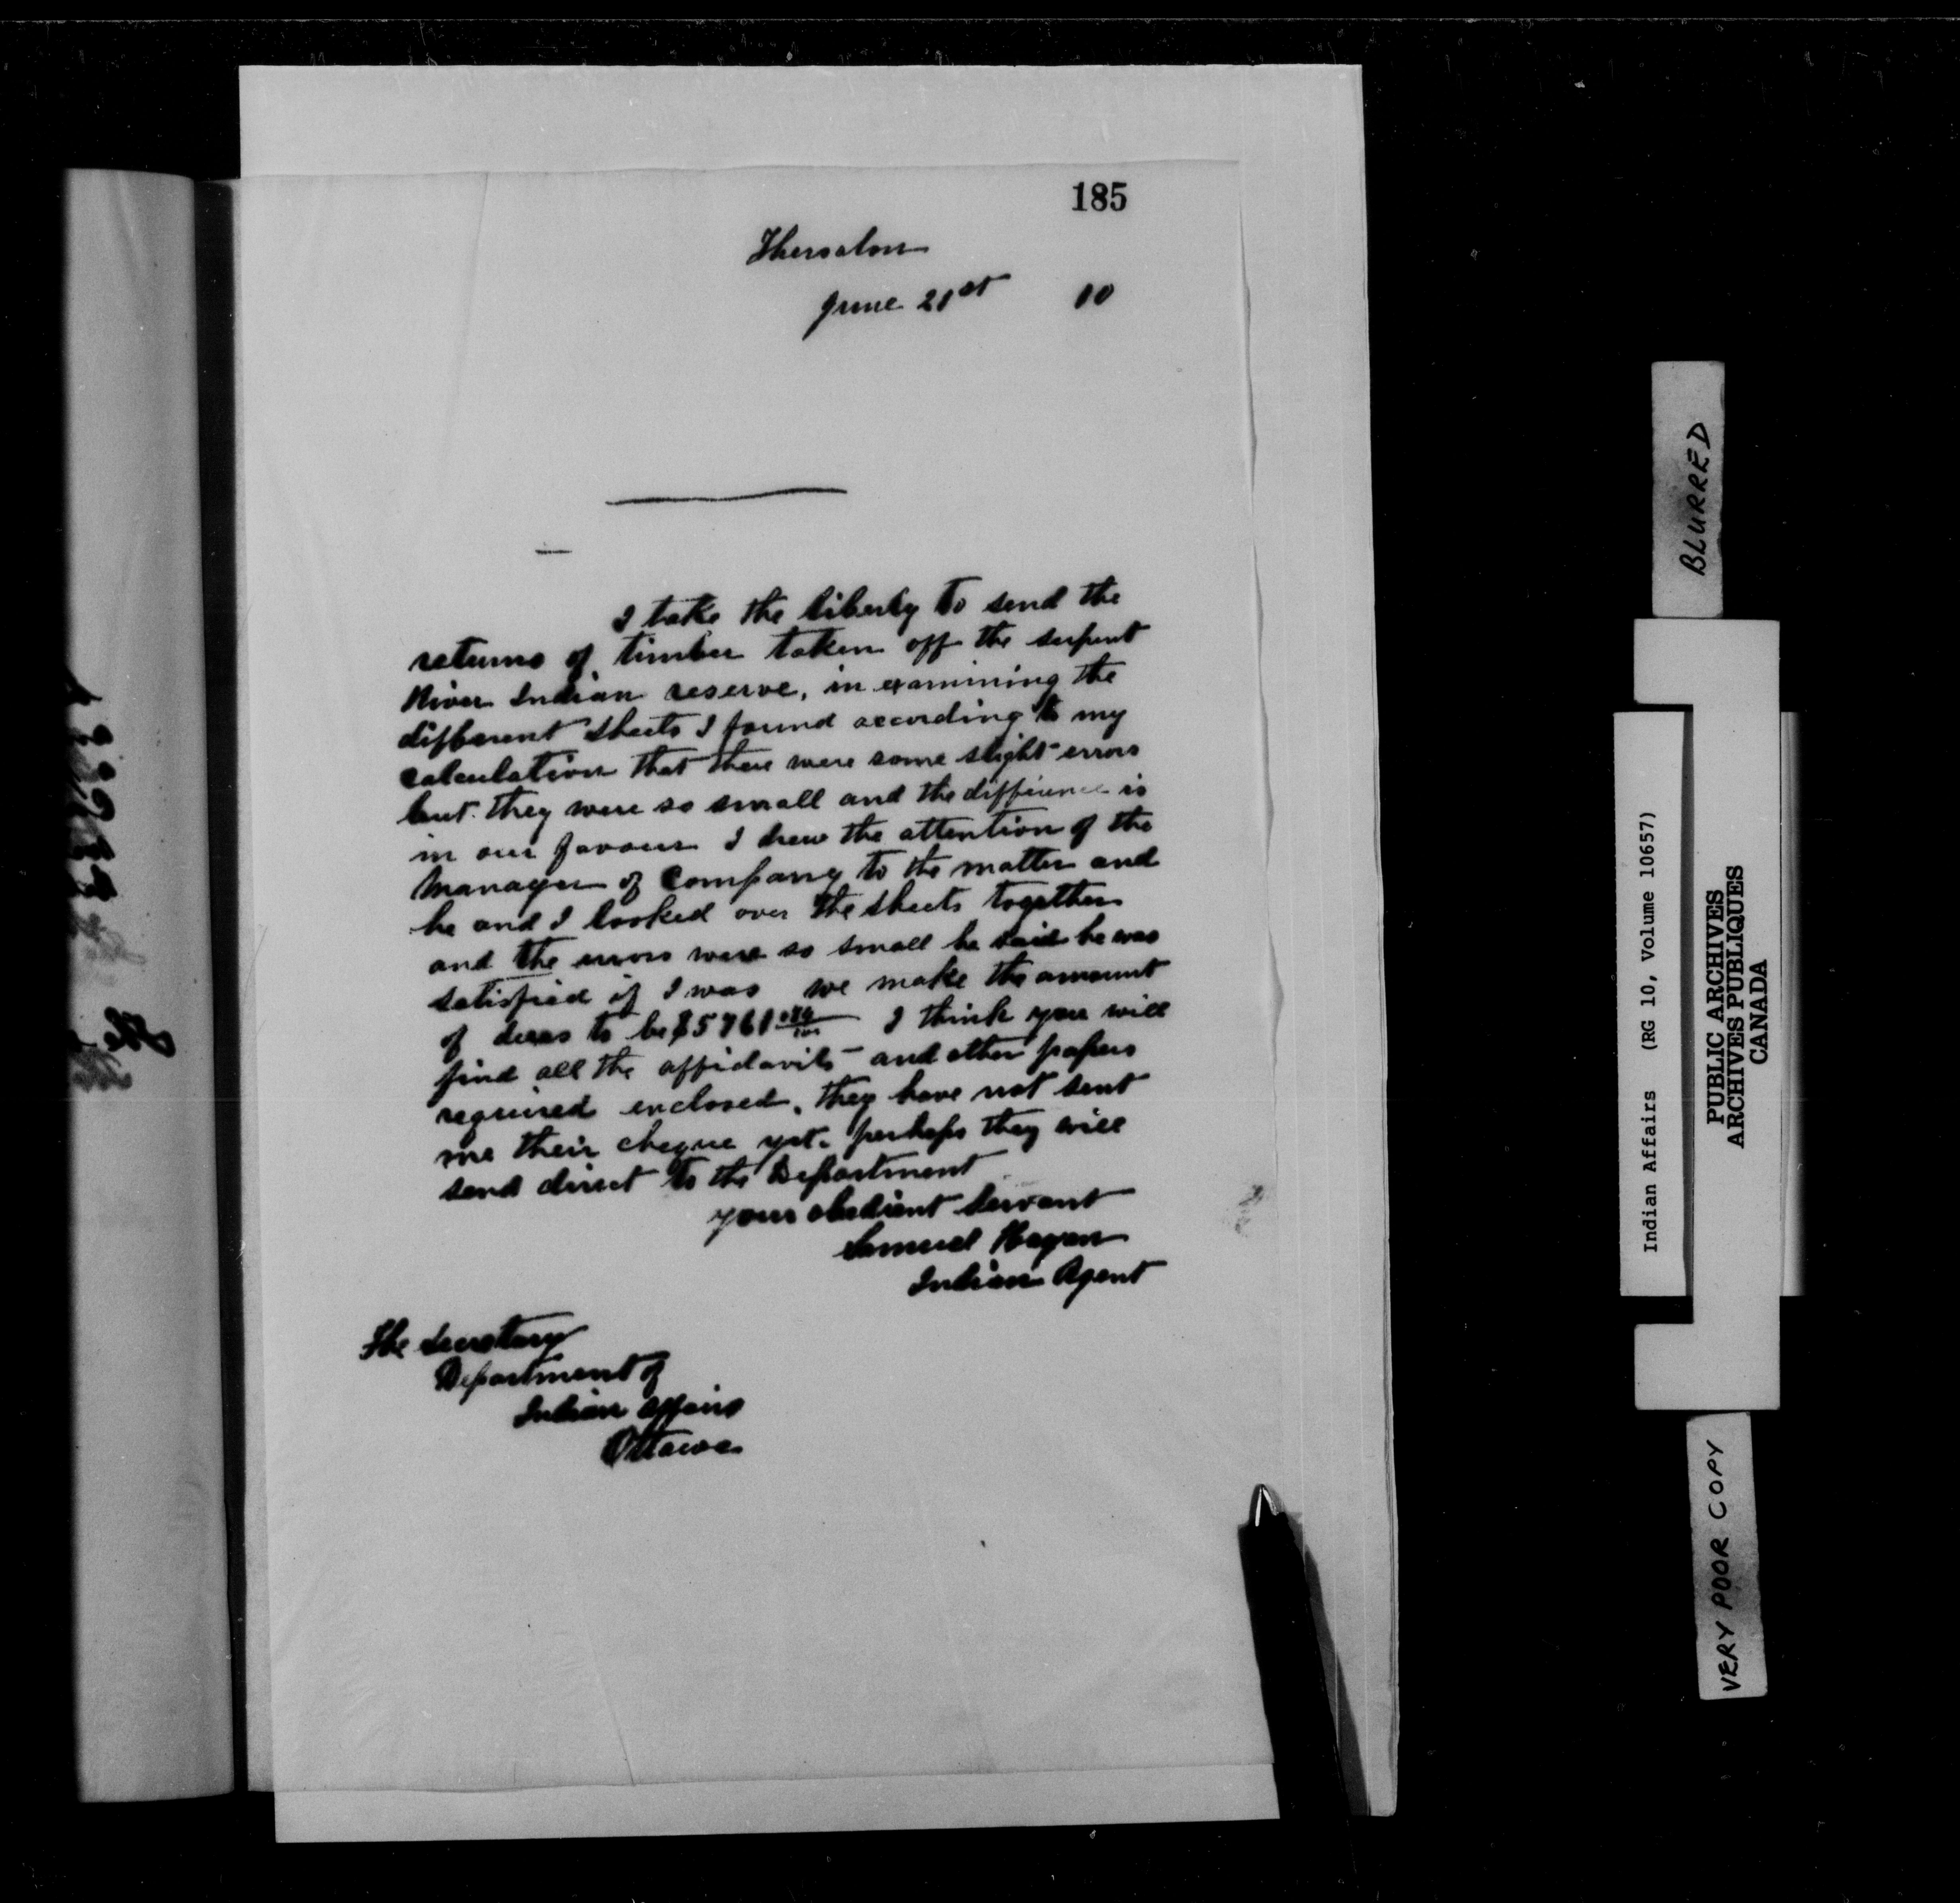 185
Thessalon
June 21st 10
I take the liberty to send the
returns of timber taken off the serpent
River Indian reserve, in examining the
different sheets I found according to my
calculation that there were some slight errors
but they were so small and the difference is
in our favour I drew the attention of the
Manager of Company to the matter and
he and I looked over the sheets together
and the errors were so small he said he was
satisfied if I was we make the amount
of dues to be $5761 I think you will
find all the affidavits and other papers
required enclosed, they have not sent
me their cheque yet. perhaps they will
send direct to the Department
your obedient servant
Samuel Hagan
Indian Agent
The Secretary
Department of
Indian Affairs
Ottawa
BLURRED
Indian Affairs (RG 10, Volume 10657)
PUBLIC ARCHIVES
ARCHIVES PUBLIQUES
CANADA
VERY POOR COPY